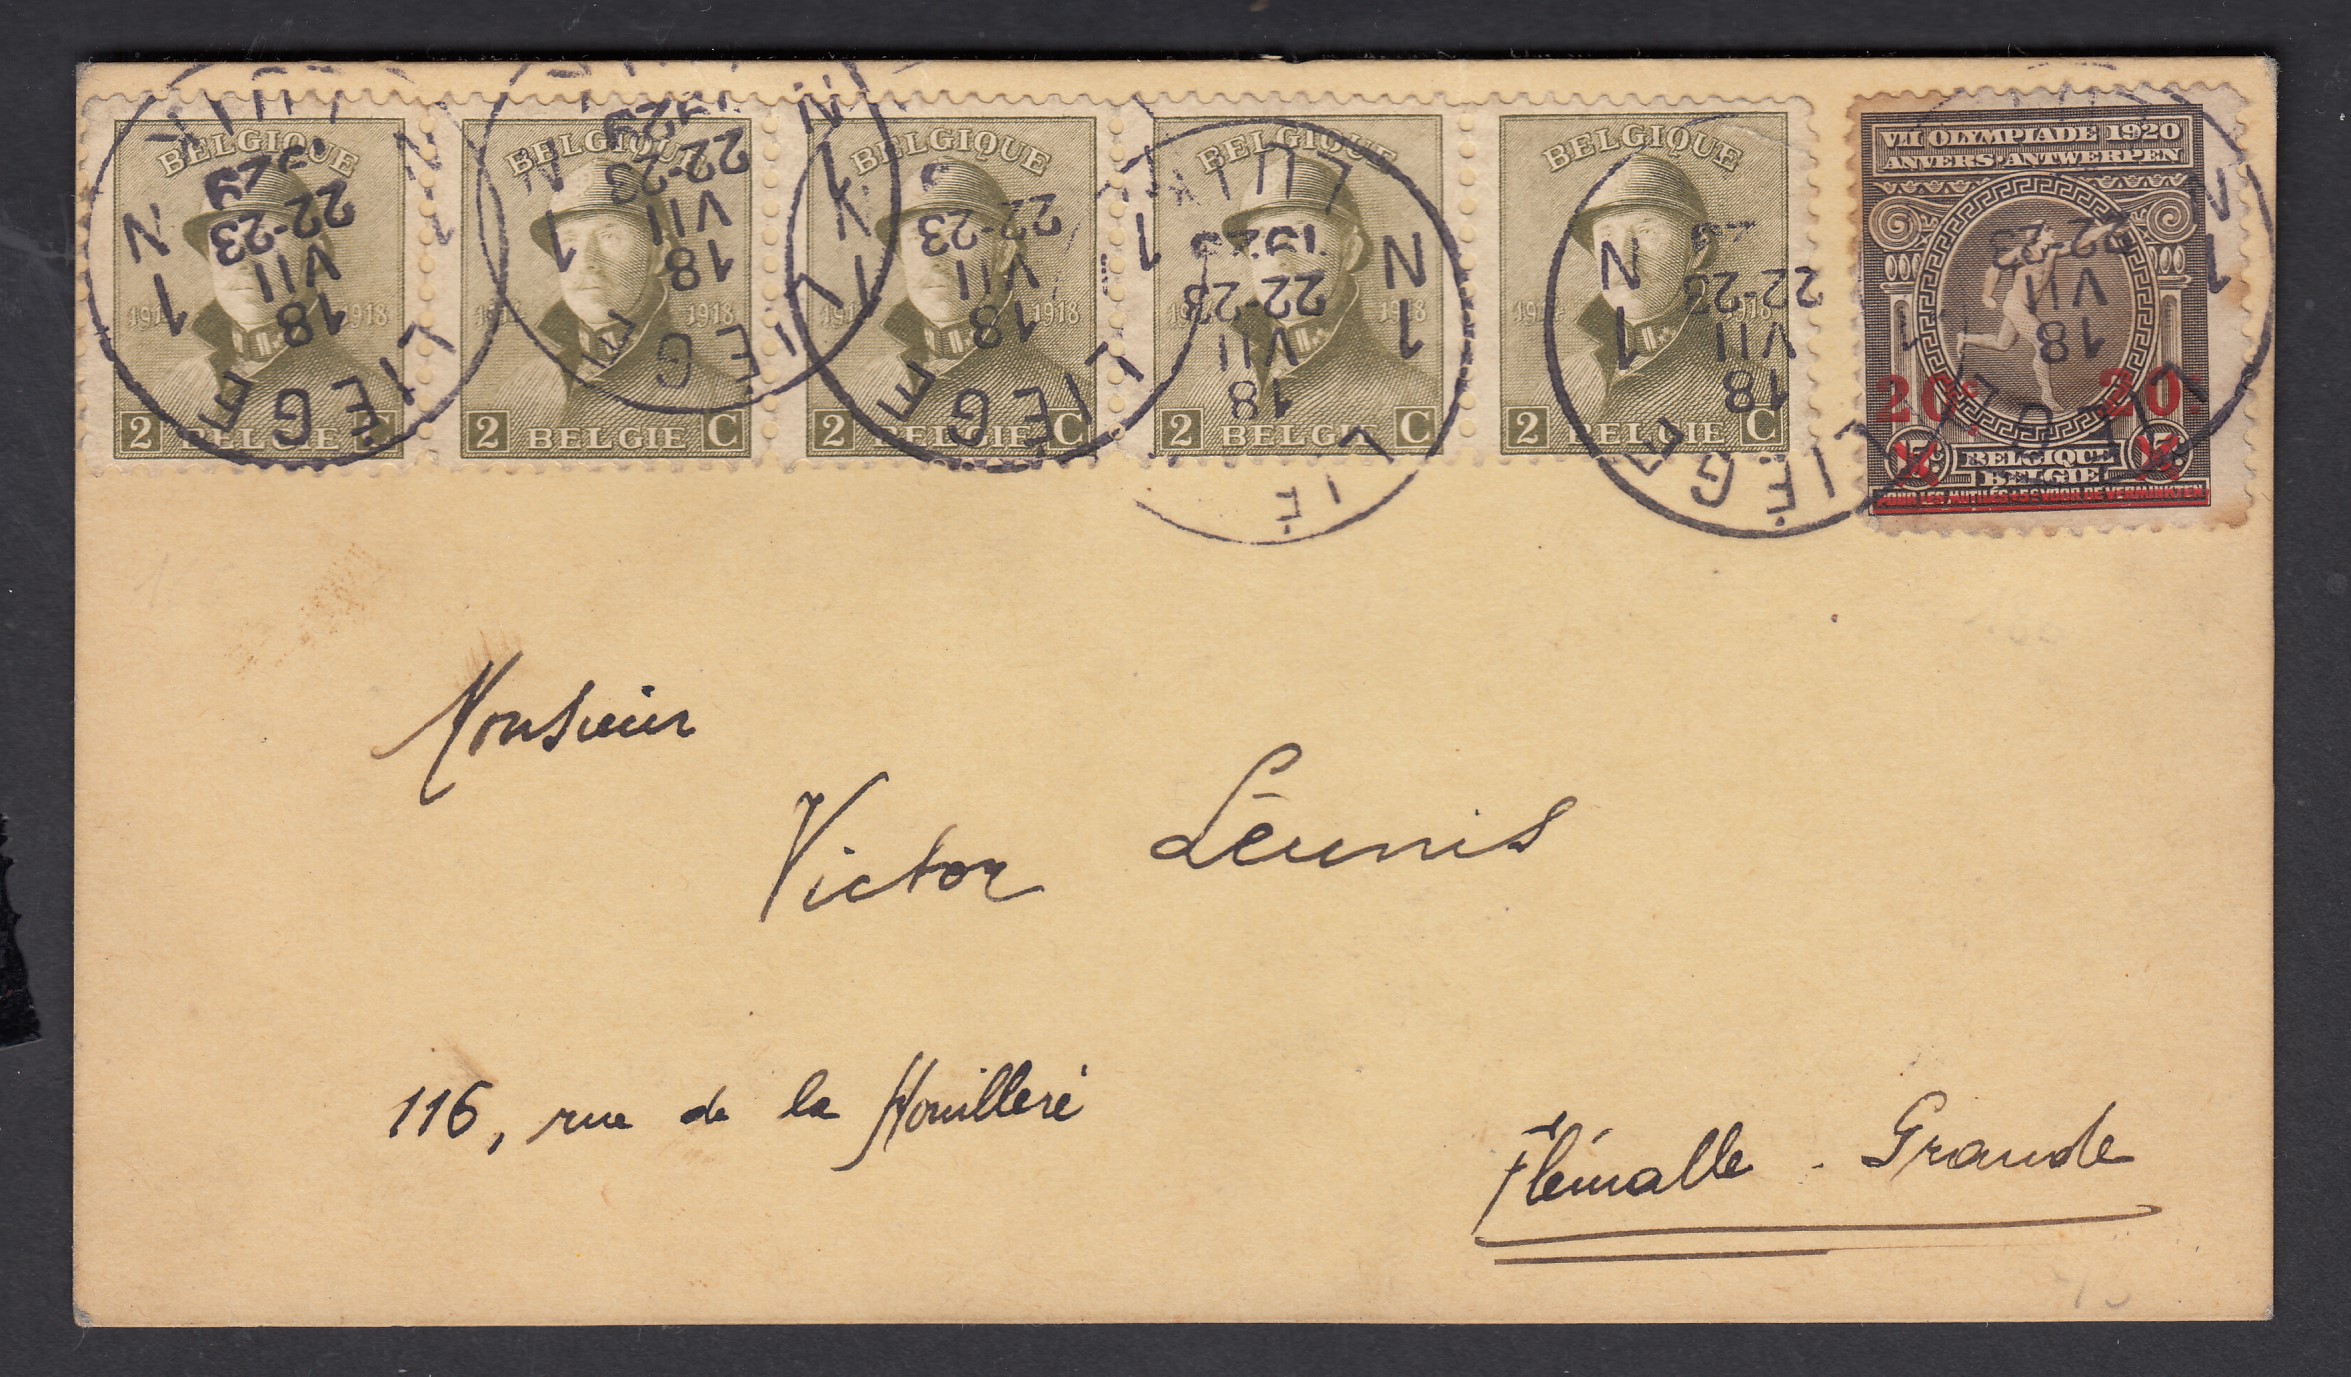 BELGIQUE
1914 1918
2 BELGIE C
BELGIQUE
1918
2 BELGIE C
BELGIQUE
1914 1918
2 BELGIE C
BELGIQUE
1918
2 BELGIE C
BELGIQUE
1914 1918
2 BELGIE C
VII OLYMPIADE 1920
ANVERS·ANTWERPEN
20c. 20c.
15c BELGIQUE 15c
BELGIË
POUR LES MUTILÉS VOOR DE VERMINKTEN
LIÉGE 1 N LUIK 1 N
18 VII 22-23 1929
LIÉGE 1 N
18 VII 22-23 1929
LIÉGE 1 LUIK 1 N
18 VII 22-23
LIÉ 1 N LUIK
18 VII 22-23 1929
LIÉGE 1 N
18 VII 22-23 29
LIÉGE 1 1 N
18 VII 22-23
Monsieur
Victor Leunis
116, rue de la Houillere
Flémalle - Grande